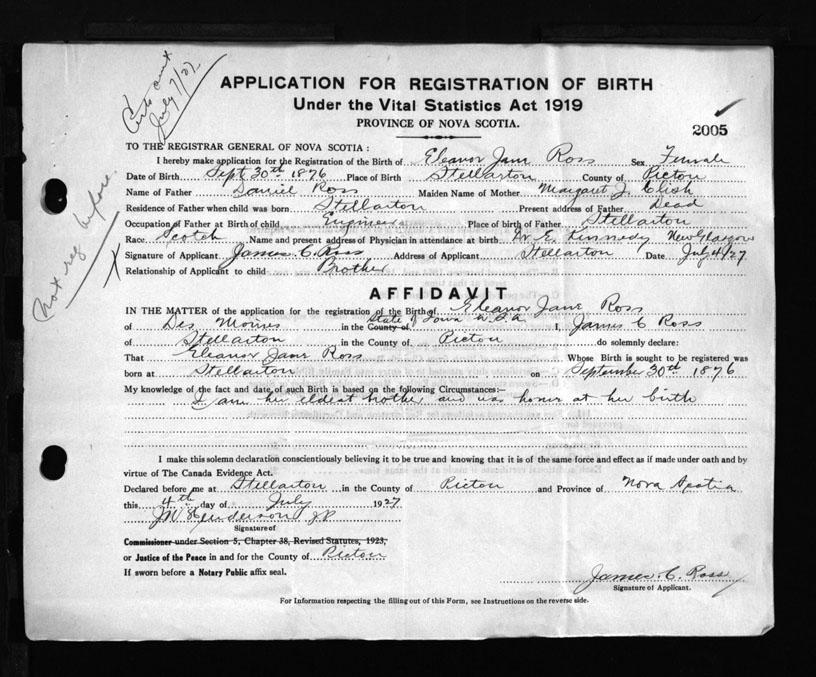 Certs cont
July 7/27
APPLICATION FOR REGISTRATION OF BIRTH
Under the Vital Statistics Act 1919
PROVINCE OF NOVA SCOTIA.
2005
TO THE REGISTRAR GENERAL OF NOVA SCOTIA :
I hereby make application for the Registration of the Birth of Eleanor Jane Ross Sex Female
Date of Birth Sept 30th 1876 Place of Birth Stellarton County of Pictou
Name of Father Daniel Ross Maiden Name of Mother Margaret J. Clish
Residence of Father when child was born Stellarton Present address of Father Dead
Occupation of Father at Birth of child Engineer Place of birth of Father Stellarton
Race Scotch Name and present address of Physician in attendance at birth Dr E. Kennedy New Glasgow
Signature of Applicant James C. Ross Address of Applicant Stellarton Date July 4/27
Relationship of Applicant to child Brother
Not reg before
X
AFFIDAVIT
IN THE MATTER of the application for the registration of the Birth of Eleanor Jane Ross
of Des Moines in the County of State of Iowa U.S.A I, James C Ross
of Stellarton in the County of Pictou do solemnly declare:
That Eleanor Jane Ross Whose Birth is sought to be registered was
born at Stellarton on September 30th 1876
My knowledge of the fact and date of such Birth is based on the following Circumstances:—
I am her eldest brother and was home at her birth
I make this solemn declaration conscientiously believing it to be true and knowing that it is of the same force and effect as if made under oath and by
virtue of The Canada Evidence Act.
Declared before me at Stellarton in the County of Pictou and Province of Nova Scotia
this 4th day of July 1927
Henderson JP
Signature of
Commissioner under Section 5, Chapter 38, Revised Statutes, 1923,
or Justice of the Peace in and for the County of Pictou
If sworn before a Notary Public affix seal.
James. C. Ross
Signature of Applicant.
For Information respecting the filling out of this Form, see Instructions on the reverse side.